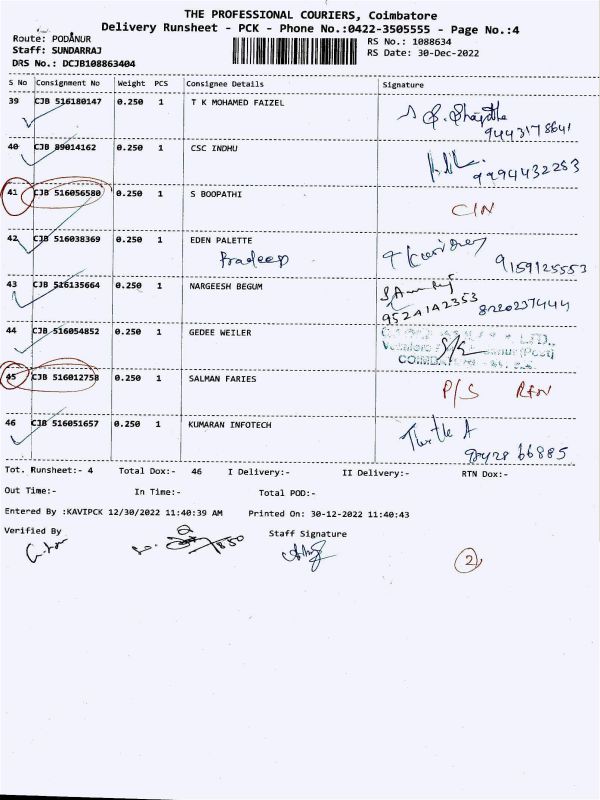 THE PROFESSIONAL COURIERS, Coimbatore
Delivery Runsheet - PCK - Phone No.:0422-3505555 - Page No.:4
Route: PODANUR
Staff: SUNDARRAJ
DRS No.: DCJB108863404
RS No.: 1088634
RS Date: 30-Dec-2022
S No Consignment No Weight PCS Consignee Details Signature
39 CJB 516180147 0.250 1 T K MOHAMED FAIZEL
9443178641
40 CJB 89014162 0.250 1 CSC INDHU
9994432253
41 CJB 516056580 0.250 1 S BOOPATHI
CIN
42 CJB 516038369 0.250 1 EDEN PALETTE
Pradeep 9159125553
43 CJB 516135664 0.250 1 NARGEESH BEGUM
9524142353 8220237444
44 CJB 516054852 0.250 1 GEDEE WEILER
45 CJB 516012758 0.250 1 SALMAN FARIES
P/S RTN
46 CJB 516051657 0.250 1 KUMARAN INFOTECH
66885
Tot. Runsheet:- 4 Total Dox:- 46 I Delivery:- II Delivery:- RTN Dox:-
Out Time:- In Time:- Total POD:-
Entered By :KAVIPCK 12/30/2022 11:40:39 AM Printed On: 30-12-2022 11:40:43
Verified By Staff Signature
2